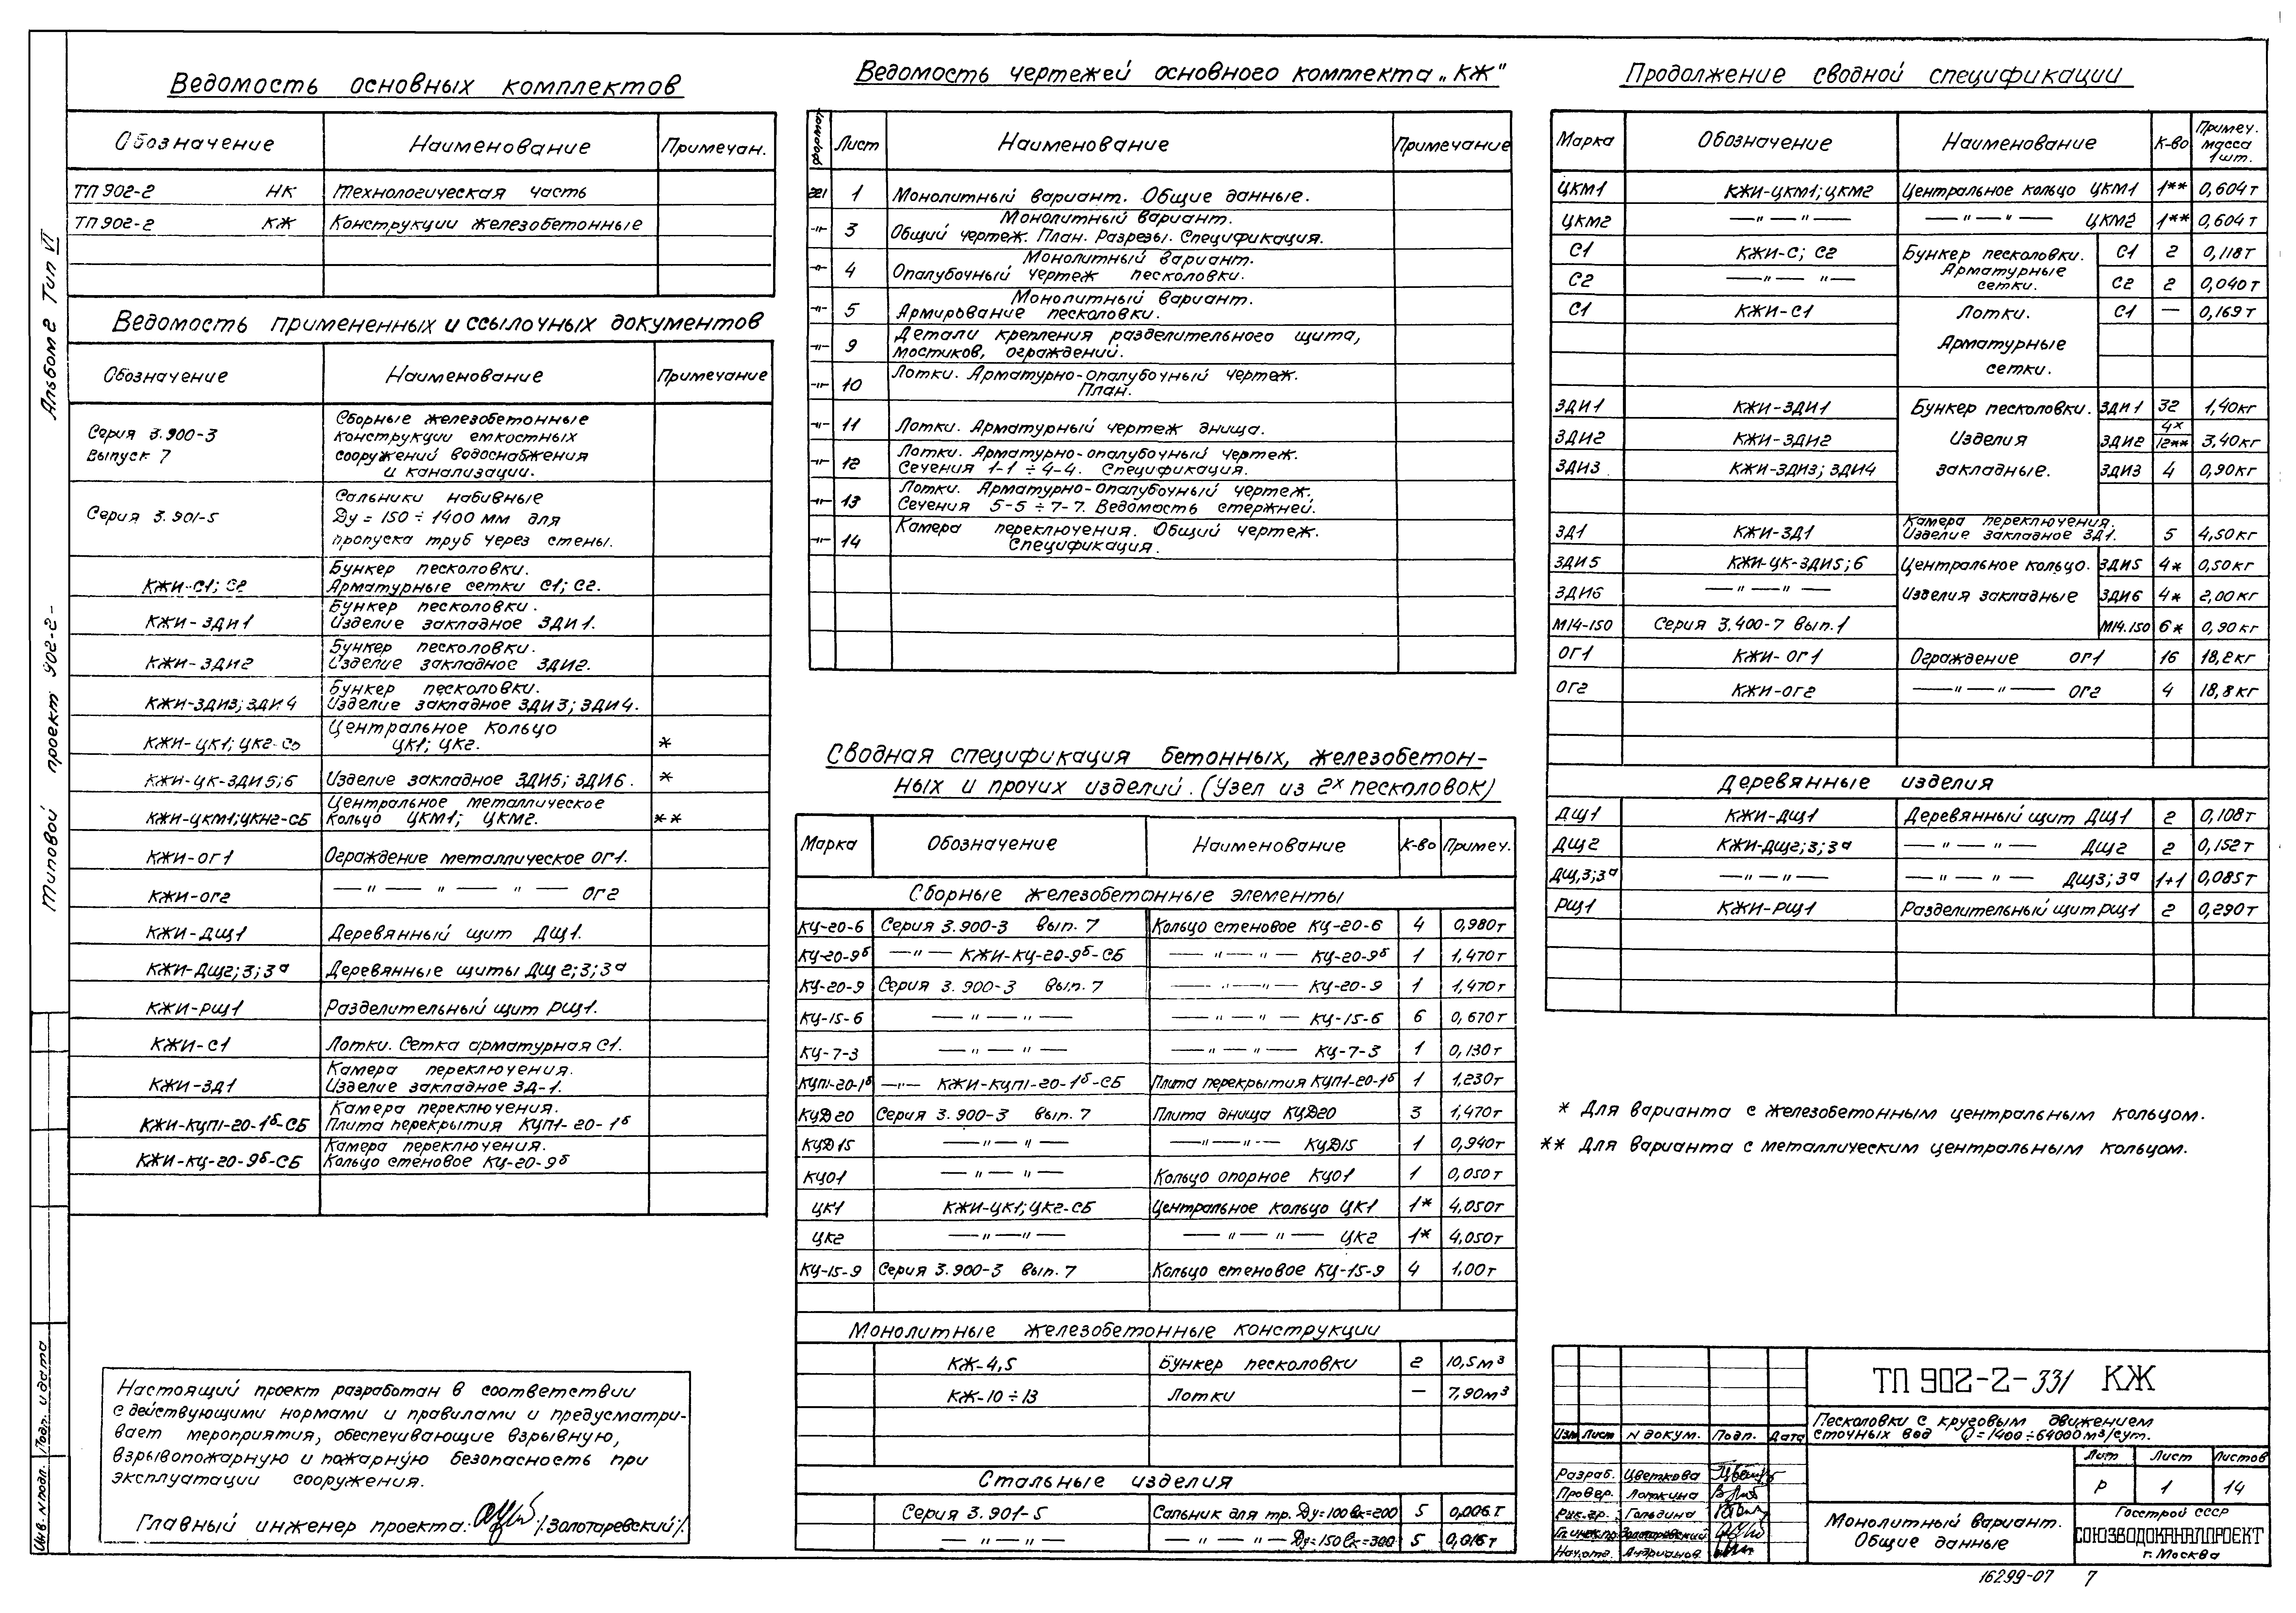 Альбом 2 Тип VI
Типовой проект 902-2-
Инв. N подл. Подп. и дата
Ведомость основных комплектов
Обозначение Наименование Примечан.
ТП 902-2 НК Технологическая часть
ТП 902-2 КЖ Конструкции железобетонные
Ведомость примененных и ссылочных документов
Обозначение Наименование Примечание
Серия 3.900-3
Выпуск 7
Сборные железобетонные
конструкции емкостных
сооружений водоснабжения
и канализации.
Серия 3.901-5
Сальники набивные
Ду = 150 ÷ 1400 мм для
пропуска труб через стены.
Бункер песколовки.
КЖИ-С1; С2 Арматурные сетки С1; С2.
Бункер песколовки.
КЖИ-ЗДИ1 Изделие закладное ЗДИ1.
Бункер песколовки.
КЖИ-ЗДИ2 Изделие закладное ЗДИ2.
Бункер песколовки.
КЖИ-ЗДИ3; ЗДИ4 Изделие закладное ЗДИ3; ЗДИ4.
Центральное кольцо
КЖИ-ЦК1; ЦК2-СБ ЦК1; ЦК2. *
КЖИ-ЦК-ЗДИ5;6 Изделие закладное ЗДИ5; ЗДИ6. *
Центральное металлическое
КЖИ-ЦКМ1; ЦКМ2-СБ Кольцо ЦКМ1; ЦКМ2. **
КЖИ-ОГ1 Ограждение металлическое ОГ1.
КЖИ-ОГ2 —"— " —— " — ОГ2
КЖИ-ДЩ1 Деревянный щит ДЩ1.
КЖИ-ДЩ2;3;3ª Деревянные щиты ДЩ2;3;3ª
КЖИ-РЩ1 Разделительный щит РЩ1.
КЖИ-С1 Лотки. Сетка арматурная С1.
Камера переключения.
КЖИ-ЗД1 Изделие закладное ЗД-1.
Камера переключения.
КЖИ-КЦП1-20-1б-СБ Плита перекрытия КЦП1-20-1б
Камера переключения.
КЖИ-КЦ-20-9б-СБ Кольцо стеновое КЦ-20-9б
Настоящий проект разработан в соответствии
с действующими нормами и правилами и предусматри-
вает мероприятия, обеспечивающие взрывную,
взрывопожарную и пожарную безопасность при
эксплуатации сооружения.
Главный инженер проекта: /Золотаревский/.
Ведомость чертежей основного комплекта „КЖ"
Формат Лист Наименование Примечание
22г 1 Монолитный вариант. Общие данные.
Монолитный вариант.
-"- 3 Общий чертеж. План. Разрезы. Спецификация.
Монолитный вариант.
-"- 4 Опалубочный чертеж песколовки.
Монолитный вариант.
-"- 5 Армирование песколовки.
Детали крепления разделительного щита,
-"- 9 мостиков, ограждений.
-"- 10 Лотки. Арматурно-опалубочный чертеж.
План.
-"- 11 Лотки. Арматурный чертеж днища.
Лотки. Арматурно-опалубочный чертеж.
-"- 12 Сечения 1-1 ÷ 4-4. Спецификация.
Лотки. Арматурно-опалубочный чертеж.
-"- 13 Сечения 5-5 ÷ 7-7. Ведомость стержней.
Камера переключения. Общий чертеж.
-"- 14 Спецификация.
Сводная спецификация бетонных, железобетон-
ных и прочих изделий. (Узел из 2х песколовок)
Марка Обозначение Наименование К-во Примеч.
Сборные железобетонные элементы
КЦ-20-6 Серия 3.900-3 вып. 7 Кольцо стеновое КЦ-20-6 4 0,980т
КЦ-20-9б —"— КЖИ-КЦ-20-9б-СБ —"—"— КЦ-20-9б 1 1,470т
КЦ-20-9 Серия 3.900-3 вып. 7 —"—"— КЦ-20-9 1 1,470т
КЦ-15-6 —"—"— —"—"— КЦ-15-6 6 0,670т
КЦ-7-3 —"—"— —"—"— КЦ-7-3 1 0,130т
КЦП1-20-1б —"— КЖИ-КЦП1-20-1б-СБ Плита перекрытия КЦП1-20-1б 1 1,230т
КЦД20 Серия 3.900-3 вып. 7 Плита днища КЦД20 3 1,470т
КЦД15 —"—"— —"—"— КЦД15 1 0,940т
КЦО1 —"—"— Кольцо опорное КЦО1 1 0,050т
ЦК1 КЖИ-ЦК1; ЦК2-СБ Центральное кольцо ЦК1 1* 4,050т
ЦК2 —"—"— —"—"— ЦК2 1* 4,050т
КЦ-15-9 Серия 3.900-3 вып. 7 Кольцо стеновое КЦ-15-9 4 1,00т
Монолитные железобетонные конструкции
КЖ-4,5 Бункер песколовки 2 10,5м³
КЖ-10÷13 Лотки — 7,90м³
Стальные изделия
Серия 3.901-5 Сальник для тр. Ду=100 ℓк=200 5 0,006т
—"—"— —"—"— Ду=150 ℓк=300 5 0,016т
Продолжение сводной спецификации
Марка Обозначение Наименование К-во Примеч. масса 1 шт.
ЦКМ1 КЖИ-ЦКМ1; ЦКМ2 Центральное кольцо ЦКМ1 1** 0,604т
ЦКМ2 —"— —"—"— ЦКМ2 1** 0,604т
С1 КЖИ-С; С2 Бункер песколовки. С1 2 0,118т
Арматурные
С2 —"—"— сетки. С2 2 0,040т
С1 КЖИ-С1 Лотки. С1 — 0,169т
Арматурные
сетки.
ЗДИ1 КЖИ-ЗДИ1 Бункер песколовки. ЗДИ1 32 1,40кг
ЗДИ2 КЖИ-ЗДИ2 Изделия ЗДИ2 4* 12** 3,40кг
ЗДИ3 КЖИ-ЗДИ3; ЗДИ4 закладные. ЗДИ3 4 0,90кг
Камера переключения.
ЗД1 КЖИ-ЗД1 Изделие закладное ЗД1. 5 4,50кг
ЗДИ5 КЖИ-ЦК-ЗДИ5;6 Центральное кольцо. ЗДИ5 4* 0,50кг
ЗДИ6 —"—"— Изделия закладные ЗДИ6 4* 2,00кг
М14-150 Серия 3.400-7 вып.1 М14.150 6* 0,90кг
ОГ1 КЖИ-ОГ1 Ограждение ОГ1 16 18,2кг
ОГ2 КЖИ-ОГ2 —"—"— ОГ2 4 18,8кг
Деревянные изделия
ДЩ1 КЖИ-ДЩ1 Деревянный щит ДЩ1 2 0,108т
ДЩ2 КЖИ-ДЩ2;3;3ª —"—"— ДЩ2 2 0,152т
ДЩ,3;3ª —"—"— —"—"— ДЩ3;3ª 1+1 0,085т
РЩ1 КЖИ-РЩ1 Разделительный щит РЩ1 2 0,290т
* Для варианта с железобетонным центральным кольцом.
** Для варианта с металлическим центральным кольцом.
ТП 902-2-331 КЖ
Песколовки с круговым движением
сточных вод Q=1400÷64000м³/сут.
Изм Лист N докум. Подп. Дата
Разраб. Цветкова
Провер. Лоткина
Рук. гр. Гольдина
Гл.инж.пр. Золотаревский
Нач.отд. Андрианов
Монолитный вариант.
Общие данные
Лит Лист Листов
Р 1 14
Госстрой СССР
СОЮЗВОДОКАНАЛПРОЕКТ
г. Москва
16299-07 7